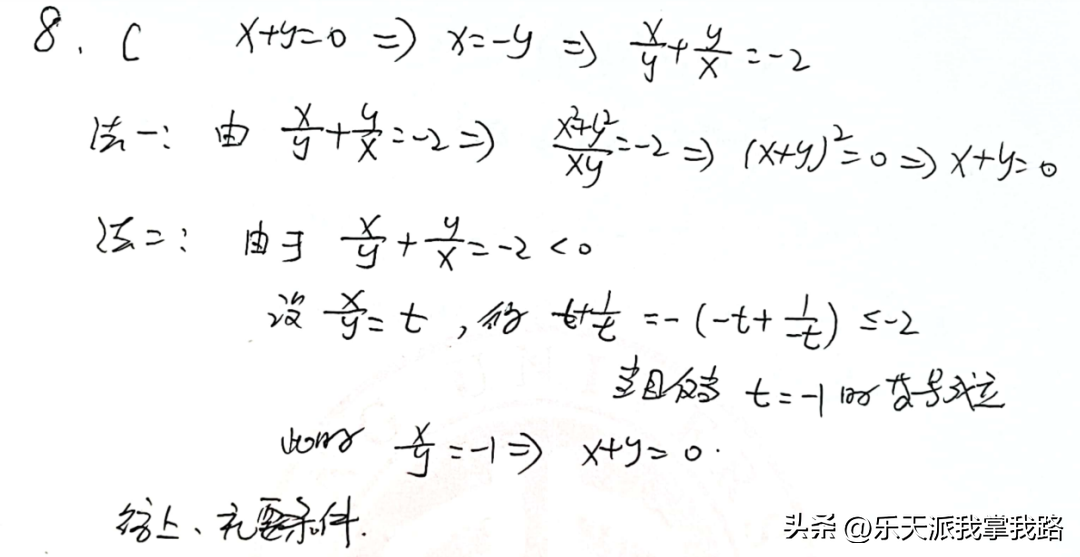 8. C x+y=0 ⇒ x=-y ⇒ x/y+y/x=-2
法一: 由 x/y+y/x=-2 ⇒ (x²+y²)/(xy)=-2 ⇒ (x+y)²=0 ⇒ x+y=0
法二: 由于 x/y+y/x=-2<0
设 x/y=t, 得 t+1/t=-(-t+1/(-t))≤-2
当且仅当 t=-1时等号成立
此时 x/y=-1 ⇒ x+y=0.
综上、充要条件.
头条 @乐天派我掌我路